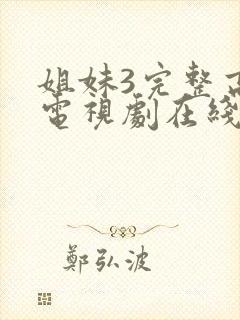 姐妹3完整
電視劇在綫
鄭弘波